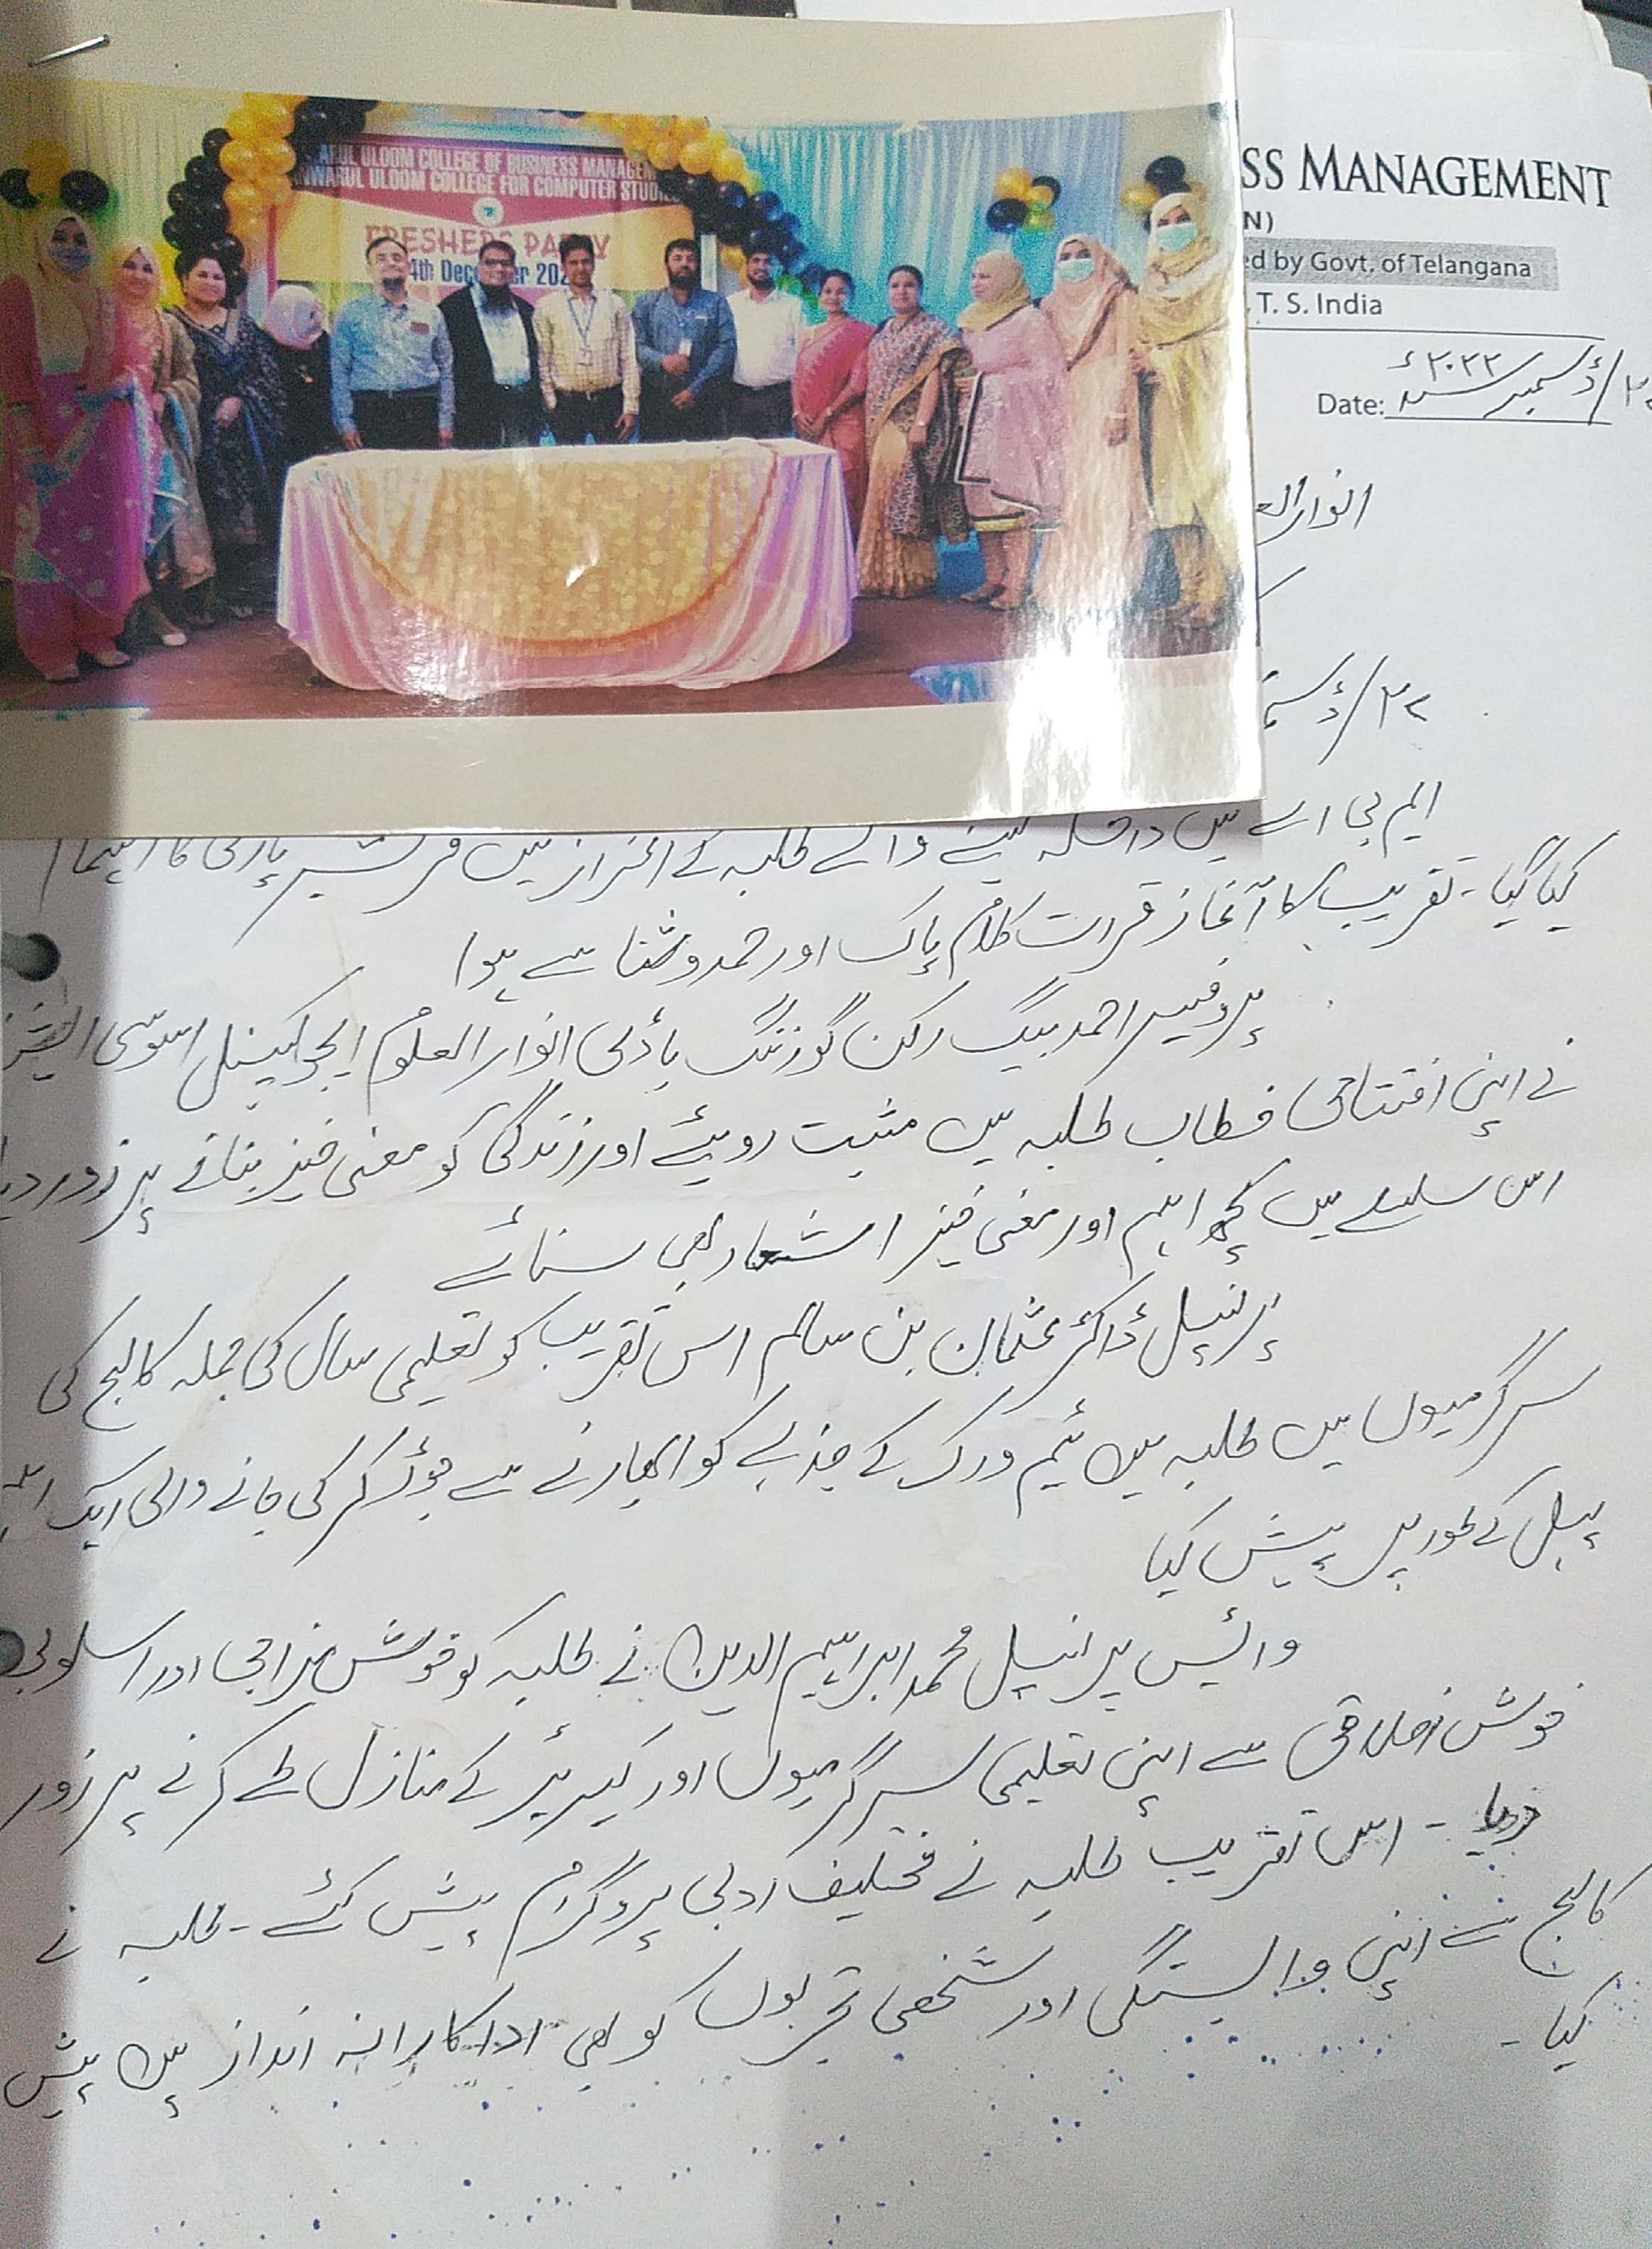 ARUL ULOOM COLLEGE OF BUSINESS MANAGEM
NWARUL ULOOM COLLEGE FOR COMPUTER STUDIE
FRESHERS PARTY
4th December 202
SS MANAGEMENT
N)
ed by Govt. of Telangana
, T. S. India
Date: دسمبر سنہ ۲۰۲۲ء
انوار الع
۲۴/دسم
ایم بی اے میں داخلہ لینے والے طلبہ کے اعزاز میں فریشر پارٹی کا اہتمام
کیا گیا۔ تقریب کا آغاز قرات کلام پاک اور حمد و ثنا سے ہوا
پروفیسر احمد بیگ رکن گورننگ باڈی انوار العلوم ایجوکیشنل اسوسی ایشن
نے اپنی افتتاحی خطاب طلبہ میں مثبت رویئے اور زندگی کو معنی خیز بنانے پر زور دیا
اس سلسلے میں کچھ اہم اور معنی خیز اشعار بھی سنائے
پرنسپل ڈاکٹر عثمان بن سالم اس تقریب کو تعلیمی سال کی جملہ کالج کی
سرگرمیوں میں طلبہ میں ٹیم ورک کے جذبے کو ابھارنے سے جوڑ کر کی جانے والی ایک
پہل کے طور پر پیش کیا
وائس پرنسپل محمد ابراہیم الدین نے طلبہ کو خوش مزاجی اور اسلوبی
خوش اخلاقی سے اپنی تعلیمی سرگرمیوں اور کیریئر کے منازل طے کرنے پر زور
دیا۔ اس تقریب طلبہ نے مختلف ادبی پروگرام پیش کئے۔ طلبہ نے
کالج سے اپنی وابستگی اور شخصی تجربوں کو بھی اداکارانہ انداز میں پیش
کیا۔